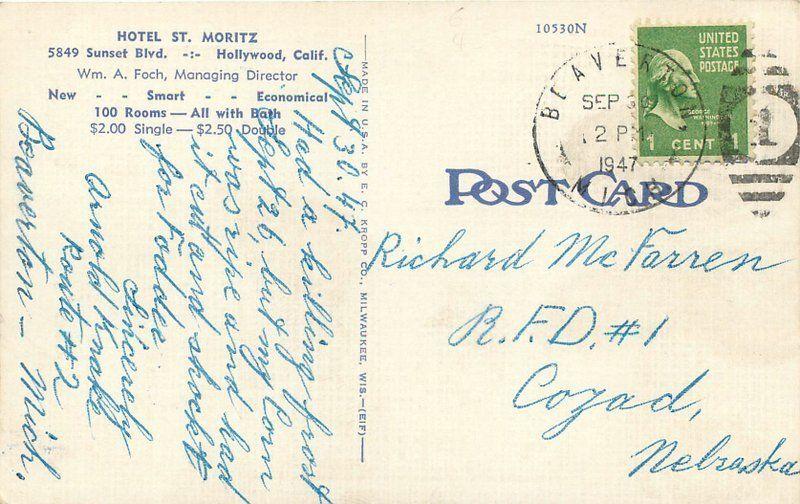 HOTEL ST. MORITZ
5849 Sunset Blvd. -:- Hollywood, Calif.
Wm. A. Foch, Managing Director
New - - Smart - - Economical
100 Rooms — All with Bath
$2.00 Single — $2.50 Double
Sept 30. 47.
Had a killing frost
Sept 26, but my Corn
was ripe and had
it cut and shocked
for Fodder
Sincerely
Arnold
Route #2
Beaverton – Mich.
MADE IN U.S.A. BY E. C. KROPP CO., MILWAUKEE, WIS.—(EIF)
10530N
BEAVERTON,
SEP 30
2 PM
1947
MICH.
UNITED
STATES
POSTAGE
GEORGE
WASHINGTON
1 CENT 1
POST CARD
Richard McFarren
R.F.D. #1
Cozad,
Nebraska